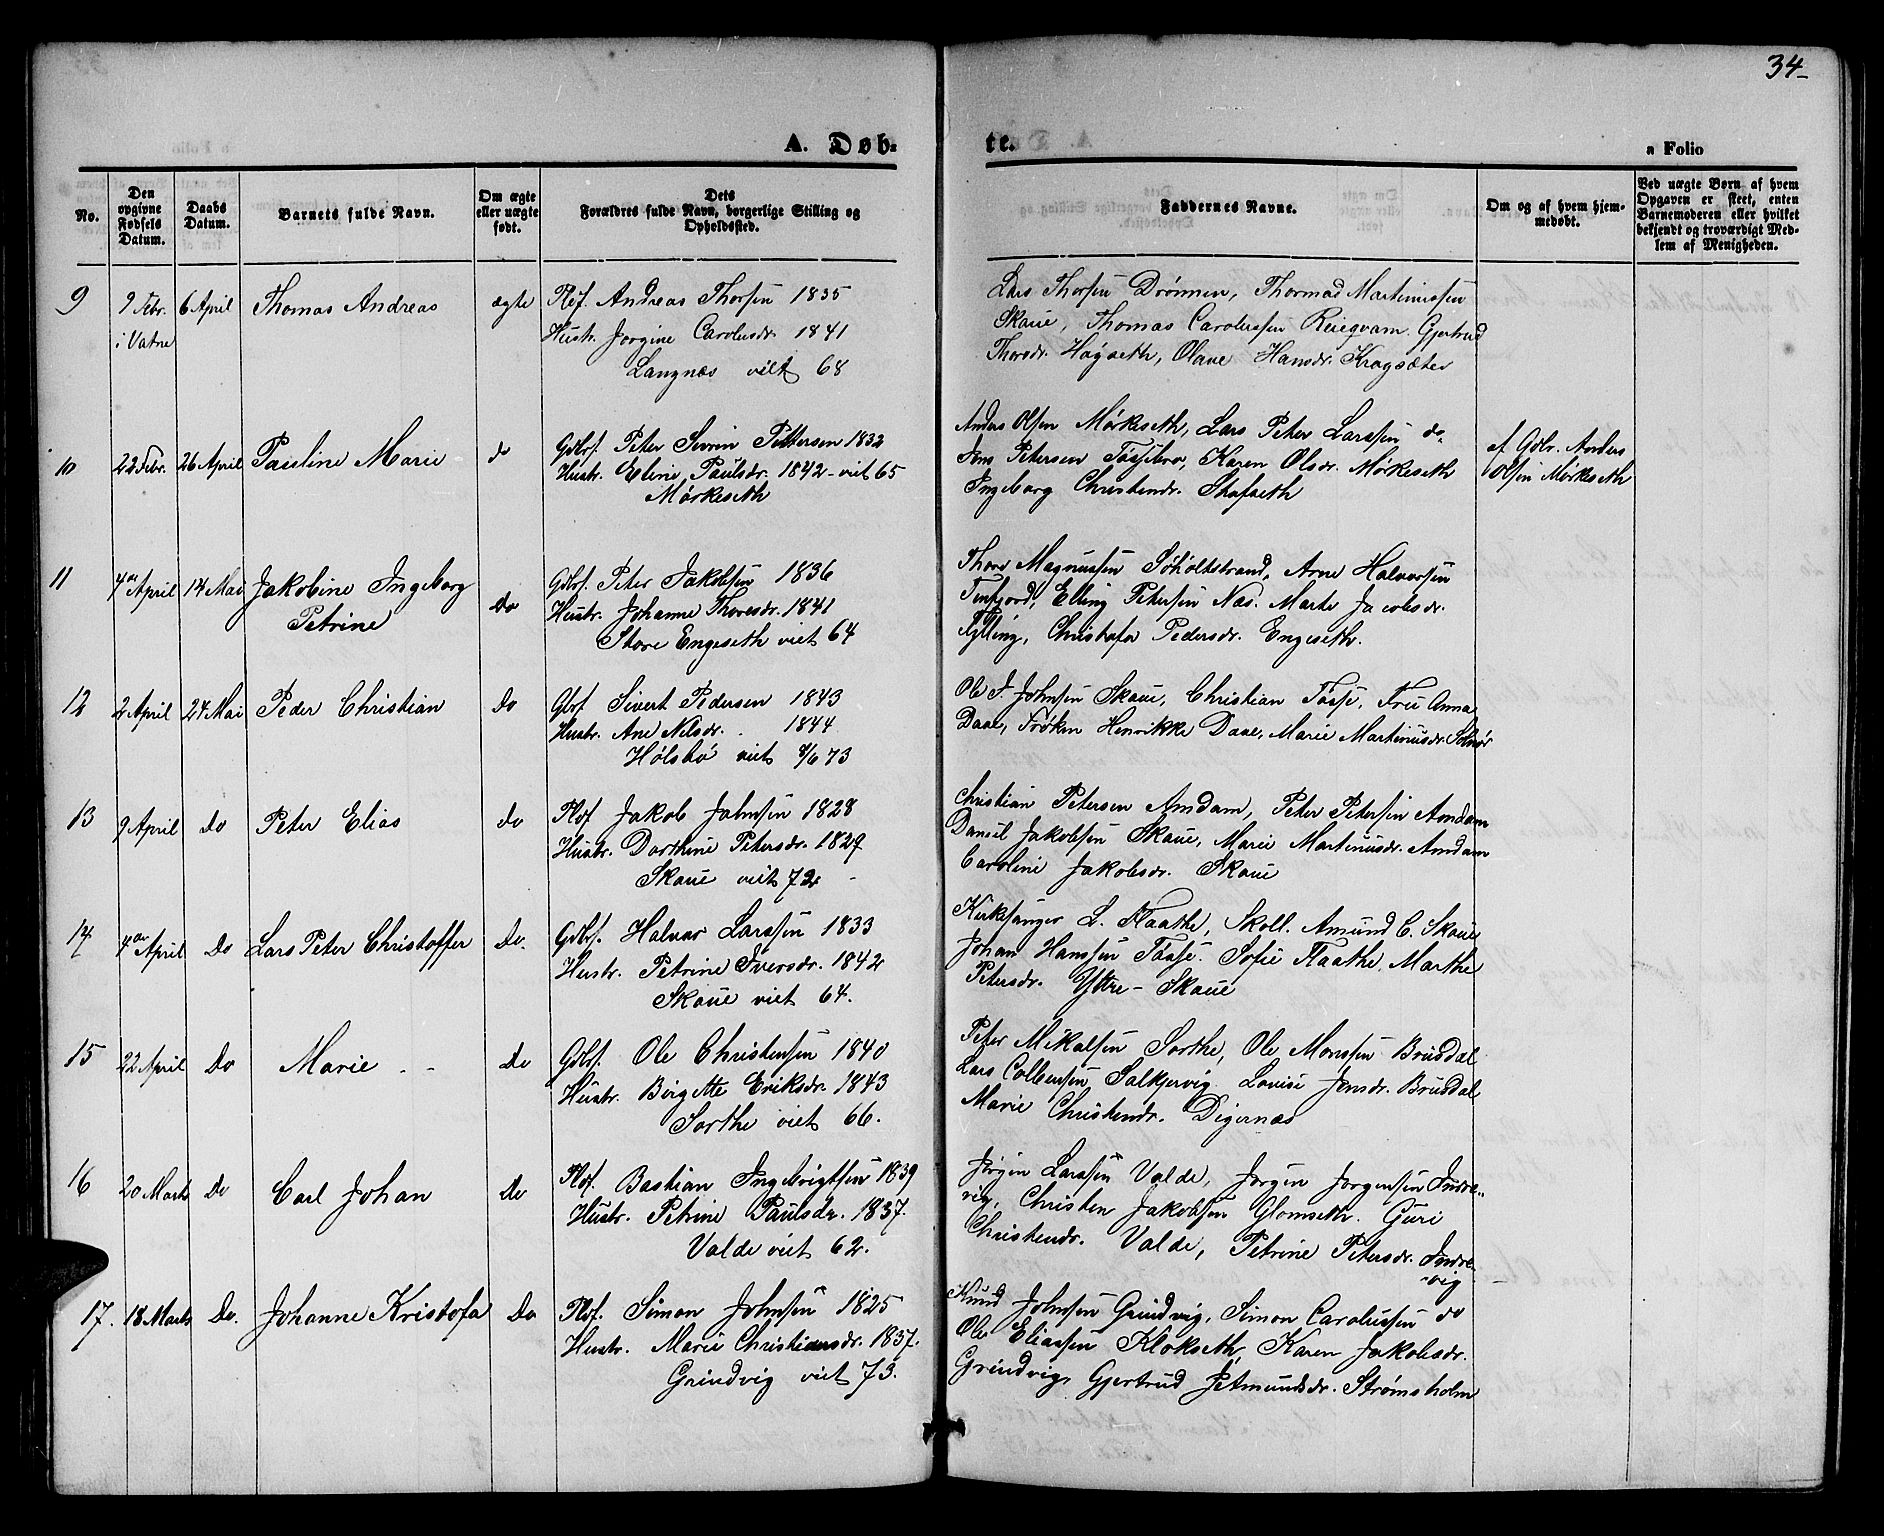 34
A. Døb-
te.
a Folio
No.
Den opgivne Fødsels Datum.
Daabs Datum.
Barnets fulde Navn.
Om ægte eller uægte født.
Dets Forældres fulde Navn, borgerlige Stilling og Opholdssted.
Faddernes Navne.
Om og af hvem hjem-
medøbt.
Ved uægte Børn af hvem
Opgaven er skeet, enten
Barnemoderen eller hvilket
bekjendt og troværdigt Med-
lem af Menigheden.
9 9 Febr. 6 April Thomas Andreas ægte Andreas Thorsen 1835
i Vatne Hustr. Jorgine Carolusdr. 1841
Langnæs viet 68
Lars Thorsen Drønnen, Thomas Martinussen
Skaue, Thomas Carolussen Reiegvam. Gjertrud
Thorsdr. Høgseth, Olave Hansdr. Kragsæter
10 22 Febr. 26 April Pauline Marie do Gdbrf. Peter Sevrin Pettersen 1832
Hustr. Eline Paulsdr. 1842 - viet 65
Mørkeseth
Anders Olsen Mørkeseth, Lars Peter Larssen do.
Jens Petersen Tøssebro, Karen Olsdr. Mørkeseth
Ingeborg Christendr. Stafseth
af Gdbr. Anders
Olsen Mørkeseth
11 4de April 14 Mai Jakobine Ingeborg Do Gdbrf. Peter Jakobsen 1836
Petrine Hustr. Johanne Thoresdr. 1841
Store Engeseth viet 64
Thore Magnussen Søholtstrand, Arne Halvorsen
Tenfjord, Elling Petersen Næs. Marte Jacobsdr.
Fylling, Christofa Pedersdr. Engeseth.
12 2 April 24 Mai Peder Christian Do Gbrf Sivert Pedersen 1843
Hustr. Ane Nilsdr. 1844
Hølsbø viet 8/6 73
Ole J. Johnsen Skaue, Christian Tøsse, Fru Anna
Daae, Frøken Henrikke Daae, Marie Martinusdr. Solnør
13 9 April Do Peter Elias do Plsf Jakob Johnsen 1828
Hustr. Dorthine Petersdr. 1829
Skaue viet 72
Christian Petersen Amdam, Peter Petersen Amdam
Daniel Jakobsen Skaue, Marie Martinusdr. Amdam
Caroline Jakobsdr. Skaue
14 4de April Do Lars Peter Christoffer Do. Gdbrf. Halvor Larssen 1833
Hustr. Petrine Iversdr. 1842
Skaue viet 64.
Kirkesanger L. Flaathe, Skoll. Amund C. Skaue
Johan Hanssen Tøsse. Sofie Flaathe, Marthe
Petersdr. Yttre - Skaue
15 22 April Do Marie Do Gdbrf. Ole Christensen 1840
Hustr. Birgitte Eriksdr. 1843
Sorthe viet 66.
Peter Mikalsen Sorthe, Ole Monssen Brusdal
Lars Colbensen Salkjervig. Lovise Jonsdr. Brusdal
Marie Christendr. Digernæs
16 20 Marts Do Carl Johan Do Plsf. Bastian Ingebrigtsen 1839
Hustr. Petrine Paulsdr. 1837.
Valde viet 62.
Jørgen Larssen Valde, Jørgen Jørgensen Indre-
vig, Christen Jakobsen Glomseth. Guri
Christendr. Valde, Petrine Petersdr. Indre-
vig
17. 18 Marts Do. Johanne Kristofa Do Plsf. Simon Johnsen 1825
Hustr. Marie Christiansdr. 1837.
Grindvig viet 73.
Knud Johnsen Grindvig, Simon Carolussen do
Ole Eliassen Klokseth, Karen Jakobsdr.
Grindvig, Gjertrud Petmundsdr. Strømsholm